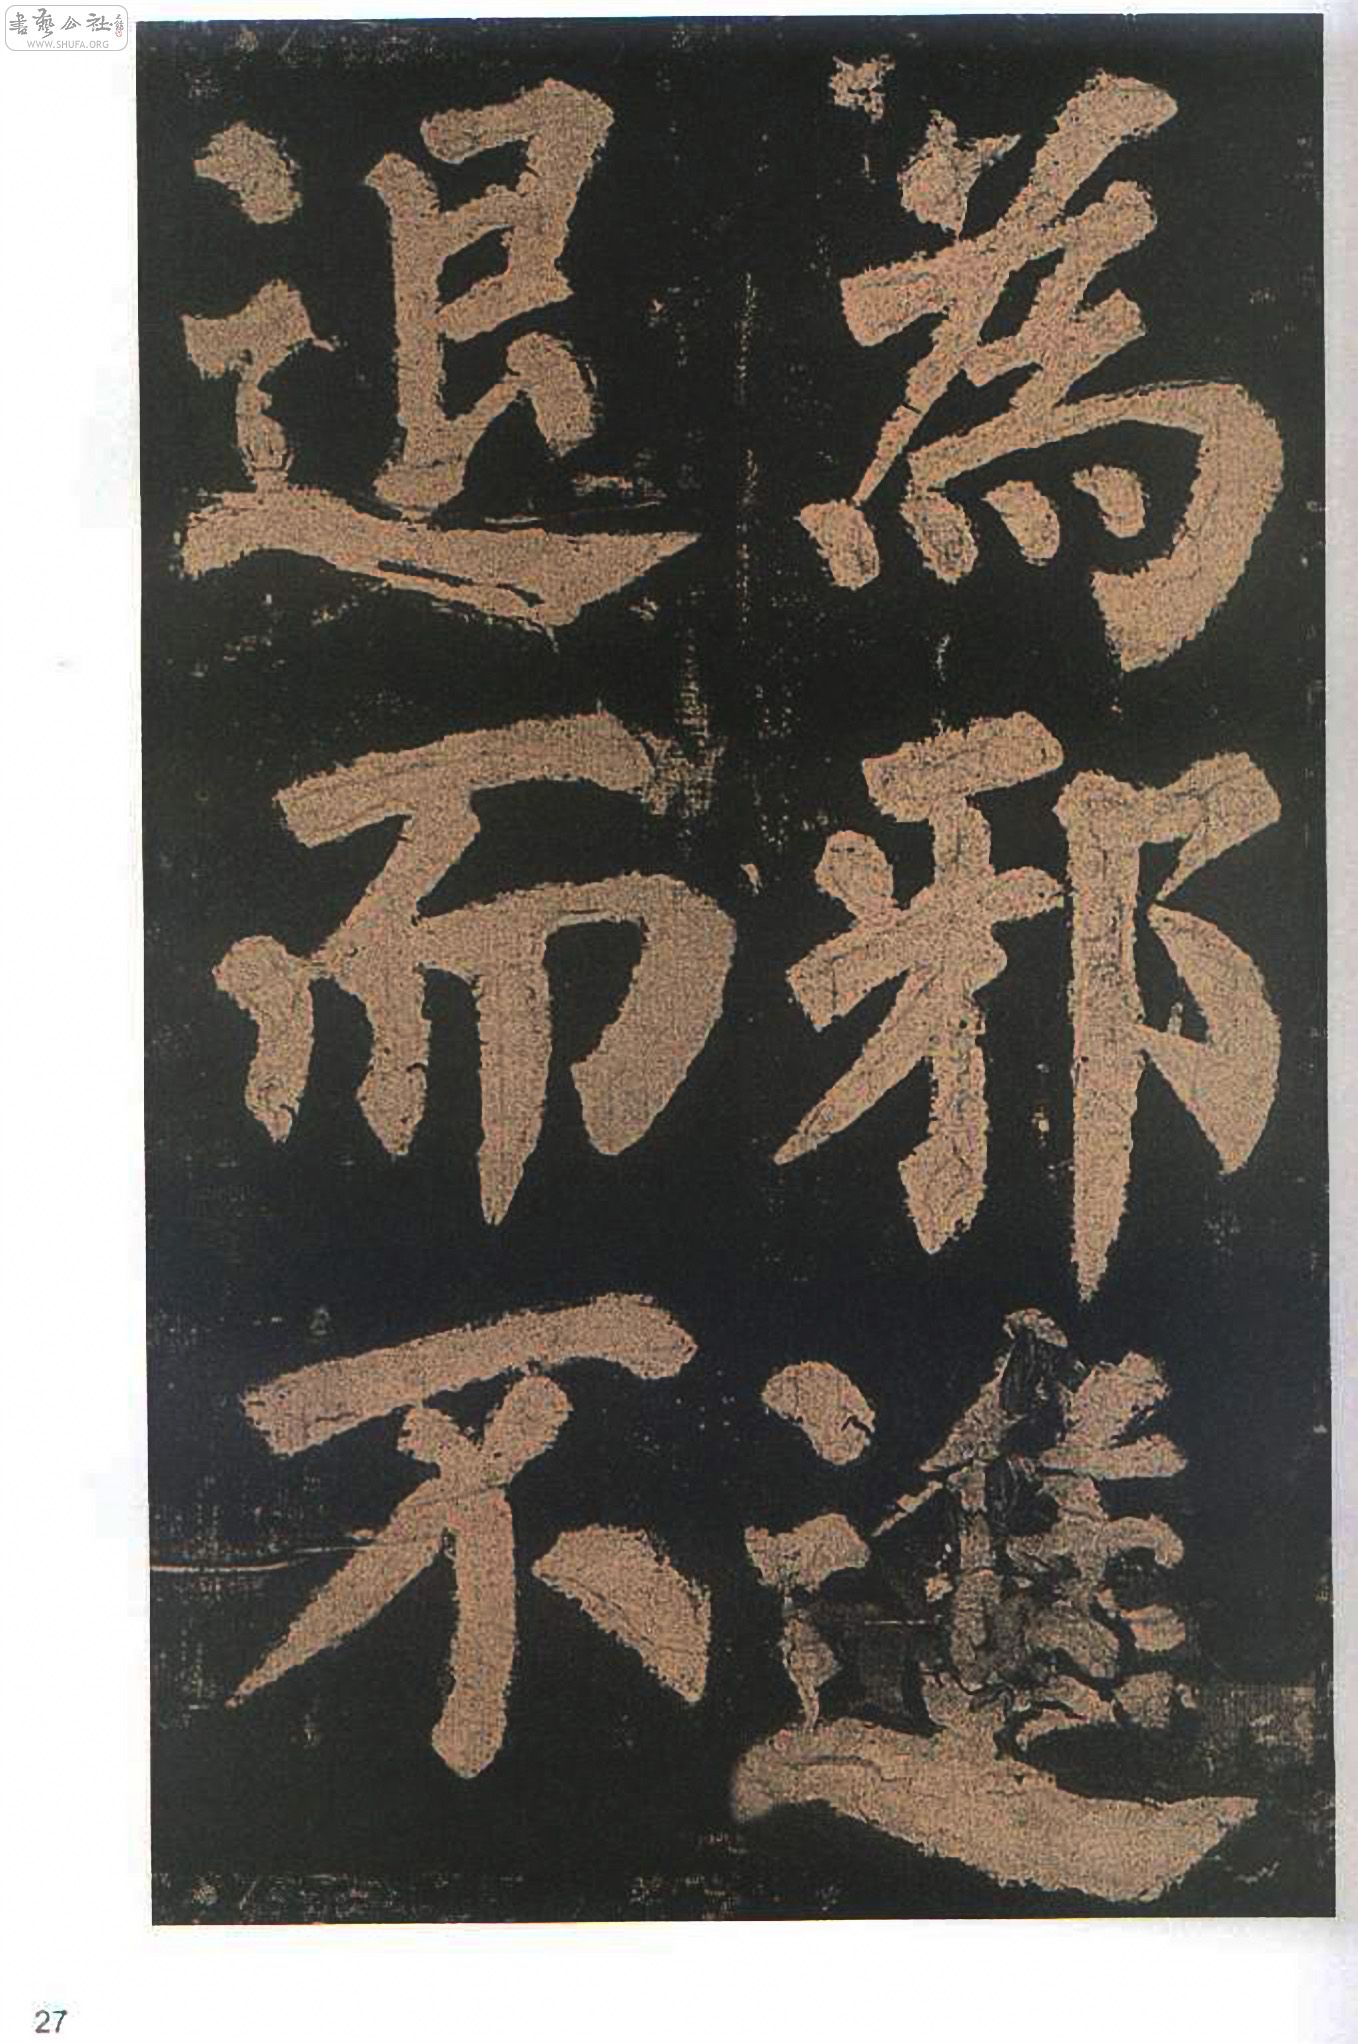 書藝公社
WWW.SHUFA.ORG
為邪進
退而不
27